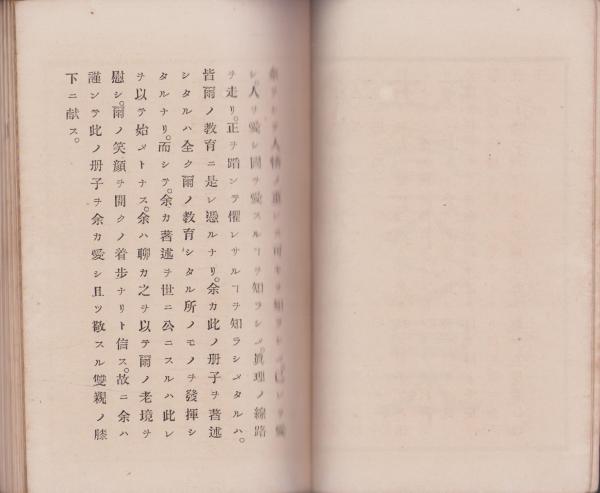 シ。人ヲ愛シ國ヲ愛スルヿヲ知ラシメ。眞理ノ線路
ヲ走リ。正ヲ蹈ンテ懼レサルヿヲ知ラシメタルハ。
皆爾ノ教育ニ是レ憑ルナリ。余カ此ノ册子ヲ著述
シタルハ全ク爾ノ教育シタル所ノモノヲ發揮シ
タルナリ。而シテ。余カ著述ヲ世ニ公ニスルハ此レ
ヲ以テ始メトナス。余ハ聊カ之ヲ以テ爾ノ老境ヲ
慰シ。爾ノ笑顔ヲ開クノ着歩ナリト信ス。故ニ余ハ
謹ンテ此ノ册子ヲ余カ愛シ且ツ敬スル雙親ノ膝
下ニ献ス。